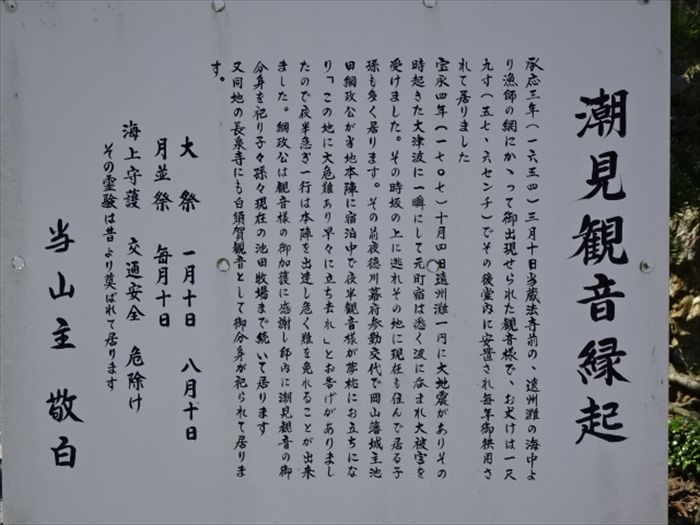 潮見観音縁起
承応三年(一六五四)三月十日当蔵法寺前の、遠州灘の海中よ
り漁師の網にかゝって御出現せられた観音様で、お丈けは一尺
九寸(五七、六センチ)でその後堂内に安置され毎年御供用さ
れて居りました
宝永四年(一七〇七)十月四日遠州灘一円に大地震がありその
時起きた大津波に一瞬にして元町宿は悉く波に呑まれ大被害を
受けました。その時坂の上に逃れその地に現在も住んで居る子
孫も多く居ります。その前夜徳川幕府参勤交代で岡山藩城主池
田綱政公が当地本陣に宿泊中で夜半観音様が夢枕にお立ちにな
り「この地に大危難あり早々に立ち去れ」とお告げがありまし
たので夜半急ぎ一行は本陣を出達し危く難を免れることが出来
ました。綱政公は観音様の御加護に感謝し邸内に潮見観音の御
分身を祀り子々孫々現在の池田牧場まで続いて居ります
又同地の長泉寺にも白須賀観音として御分身が祀られて居りま
す。
大祭 一月十日 八月十日
月並祭 毎月十日
海上守護 交通安全 危除け
その霊験は昔より莫ばれて居ります
当山主 敬白